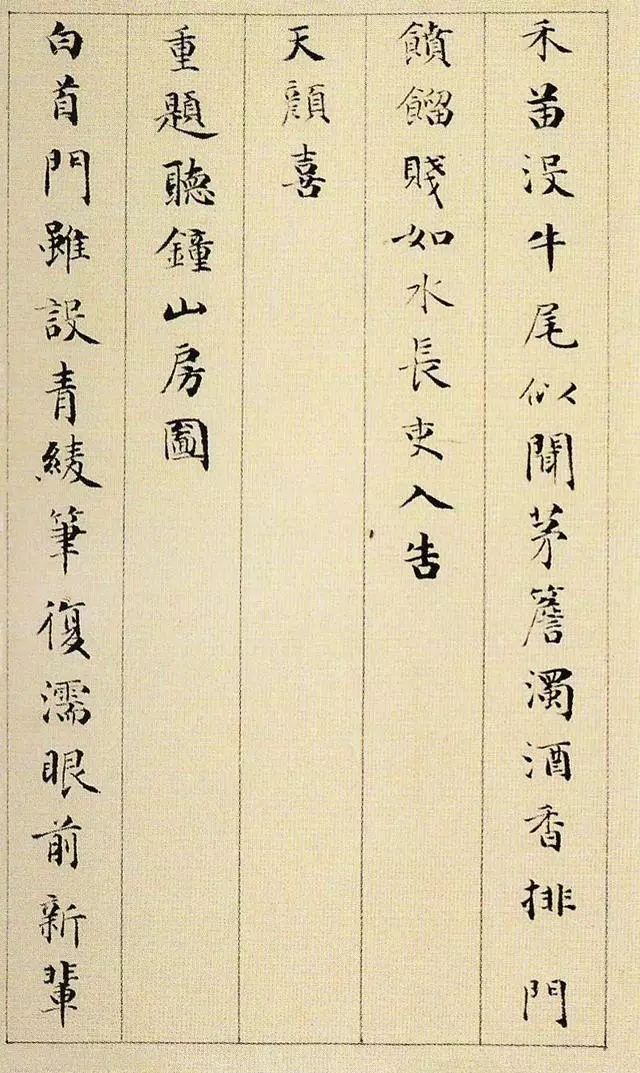 禾苗没牛尾似聞茅簷濁酒香排門
饙餾賤如水長吏入告
天顔喜
重題聽鐘山房圖
白首門雖設青綾筆復濡眼前新輩